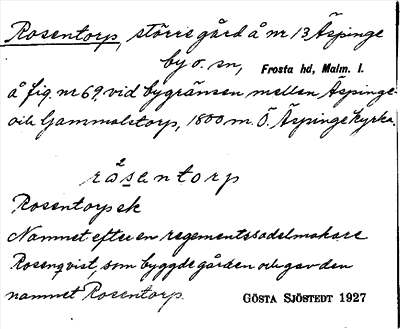 Rosentorp, större gård å nr 13 Äspinge
by o. sn, Frosta hd, Malm. l.
å fig. nr 69, vid bygränsen mellan Äspinge
och Gammalstorp, 1800 m. Ö. Äspinge kyrka.
2
råsentorp
Rosentorpsk
Namnet efter en regementssadelmakare
Rosenqvist, som byggde gården och gav den
namnet Rosentorp.
GÖSTA SJÖSTEDT 1927